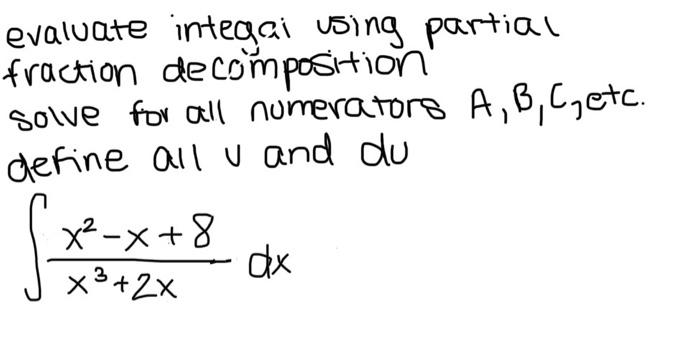 evaluate integai using partial
fraction decomposition
solve for all numerators A, B, C, etc.
define all u and du
∫ (x² - x + 8)/(x³ + 2x) dx